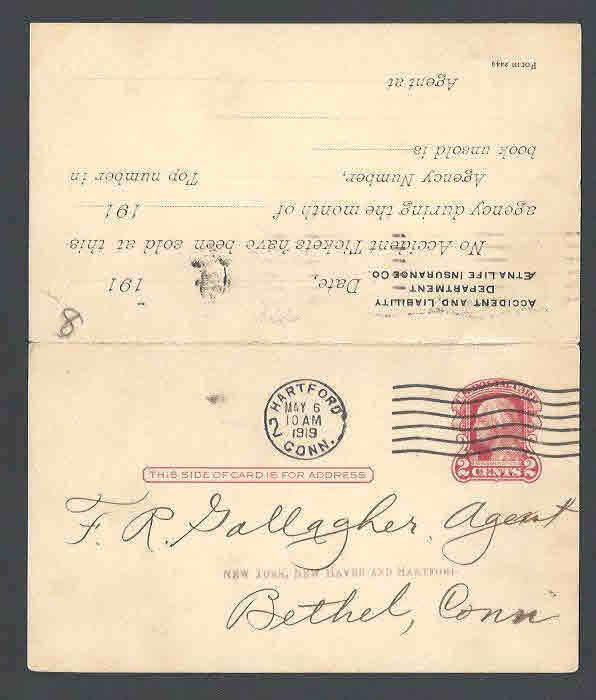 ACCIDENT AND LIABILITY
DEPARTMENT
ÆTNA LIFE INSURANCE CO.
Date, 191
No Accident Tickets have been sold at this
agency during the month of 191
Agency Number, Top number in
book unsold is
Agent at
Form
8
HARTFORD
MAY 6
10 AM
1919
2 CONN.
2 CENTS 2
THIS SIDE OF CARD IS FOR ADDRESS
F. R. Gallagher, Agent
NEW YORK, NEW HAVEN AND HARTFORD
Bethel, Conn